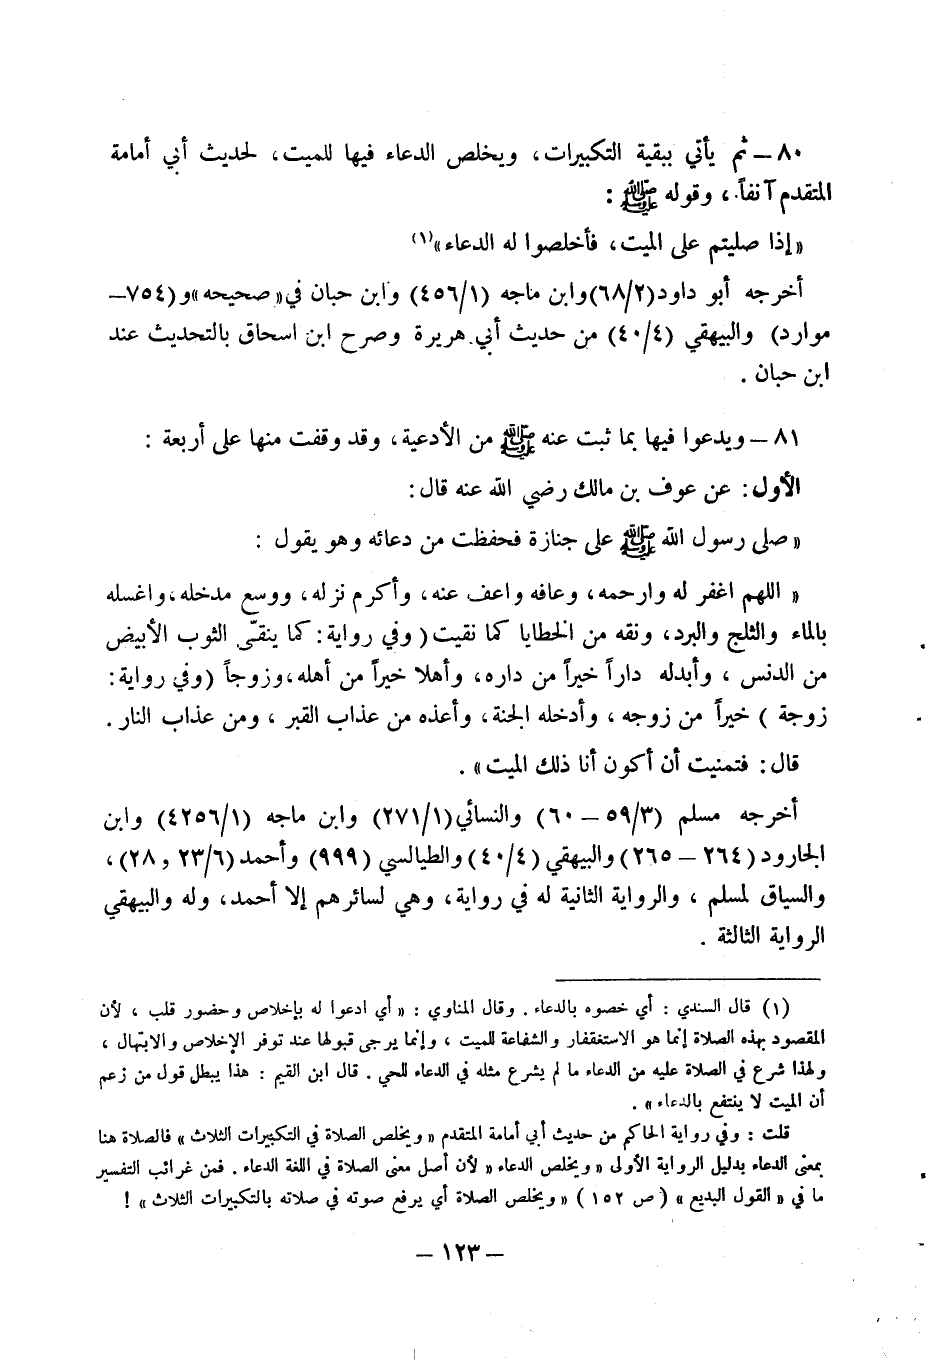 ٨٠ – ثم يأتي ببقية التكبيرات، ويخلص الدعاء فيها للميت، لحديث أبي أمامة
المتقدم آنفاً، وقوله ﷺ :
« إذا صليتم على الميت، فأخلصوا له الدعاء »(١)
أخرجه أبو داود (٦٨/٢) وابن ماجه (٤٥٦/١) وابن حبان في « صحيحه » و (٧٥٤–
موارد) والبيهقي (٤٠/٤) من حديث أبي هريرة وصرح ابن اسحاق بالتحديث عند
ابن حبان .
٨١ – ويدعوا فيها بما ثبت عنه ﷺ من الأدعية، وقد وقفت منها على أربعة :
الأول: عن عوف بن مالك رضي الله عنه قال:
« صلى رسول الله ﷺ على جنازة فحفظت من دعائه وهو يقول :
« اللهم اغفر له وارحمه، وعافه واعف عنه، وأكرم نزله، ووسع مدخله، واغسله
بالماء والثلج والبرد، ونقه من الخطايا كما نقيت ( وفي رواية: كما ينقّى الثوب الأبيض
من الدنس ، وأبدله داراً خيراً من داره، وأهلا خيراً من أهله، وزوجاً (وفي رواية:
زوجة ) خيراً من زوجه ، وأدخله الجنة، وأعذه من عذاب القبر ، ومن عذاب النار .
قال: فتمنيت أن أكون أنا ذلك الميت » .
أخرجه مسلم (٥٩/٣ – ٦٠) والنسائي (٢٧١/١) وابن ماجه (٤٢٥٦/١) وابن
الجارود (٢٦٤ – ٢٦٥) والبيهقي (٤٠/٤) والطيالسي (٩٩٩) وأحمد (٢٣/٦ و ٢٨)،
والسياق لمسلم ، والرواية الثانية له في رواية، وهي لسائرهم إلا أحمد، وله والبيهقي
الرواية الثالثة .
(١) قال السندي : أي خصوه بالدعاء . وقال المناوي : « أي ادعوا له بإخلاص وحضور قلب ، لأن
المقصود بهذه الصلاة إنما هو الاستغفار والشفاعة للميت ، وإنما يرجى قبولها عند توفر الإخلاص والابتهال ،
ولهذا شرع في الصلاة عليه من الدعاء ما لم يشرع مثله في الدعاء للحي . قال ابن القيم : هذا يبطل قول من زعم
أن الميت لا ينتفع بالدعاء » .
قلت : وفي رواية الحاكم من حديث أبي أمامة المتقدم « ويخلص الصلاة في التكبيرات الثلاث » فالصلاة هنا
بمعنى الدعاء بدليل الرواية الأولى « ويخلص الدعاء » لأن أصل معنى الصلاة في اللغة الدعاء . فمن غرائب التفسير
ما في « القول البديع » ( ص ١٥٢ ) « ويخلص الصلاة أي يرفع صوته في صلاته بالتكبيرات الثلاث » !
– ١٢٣ –